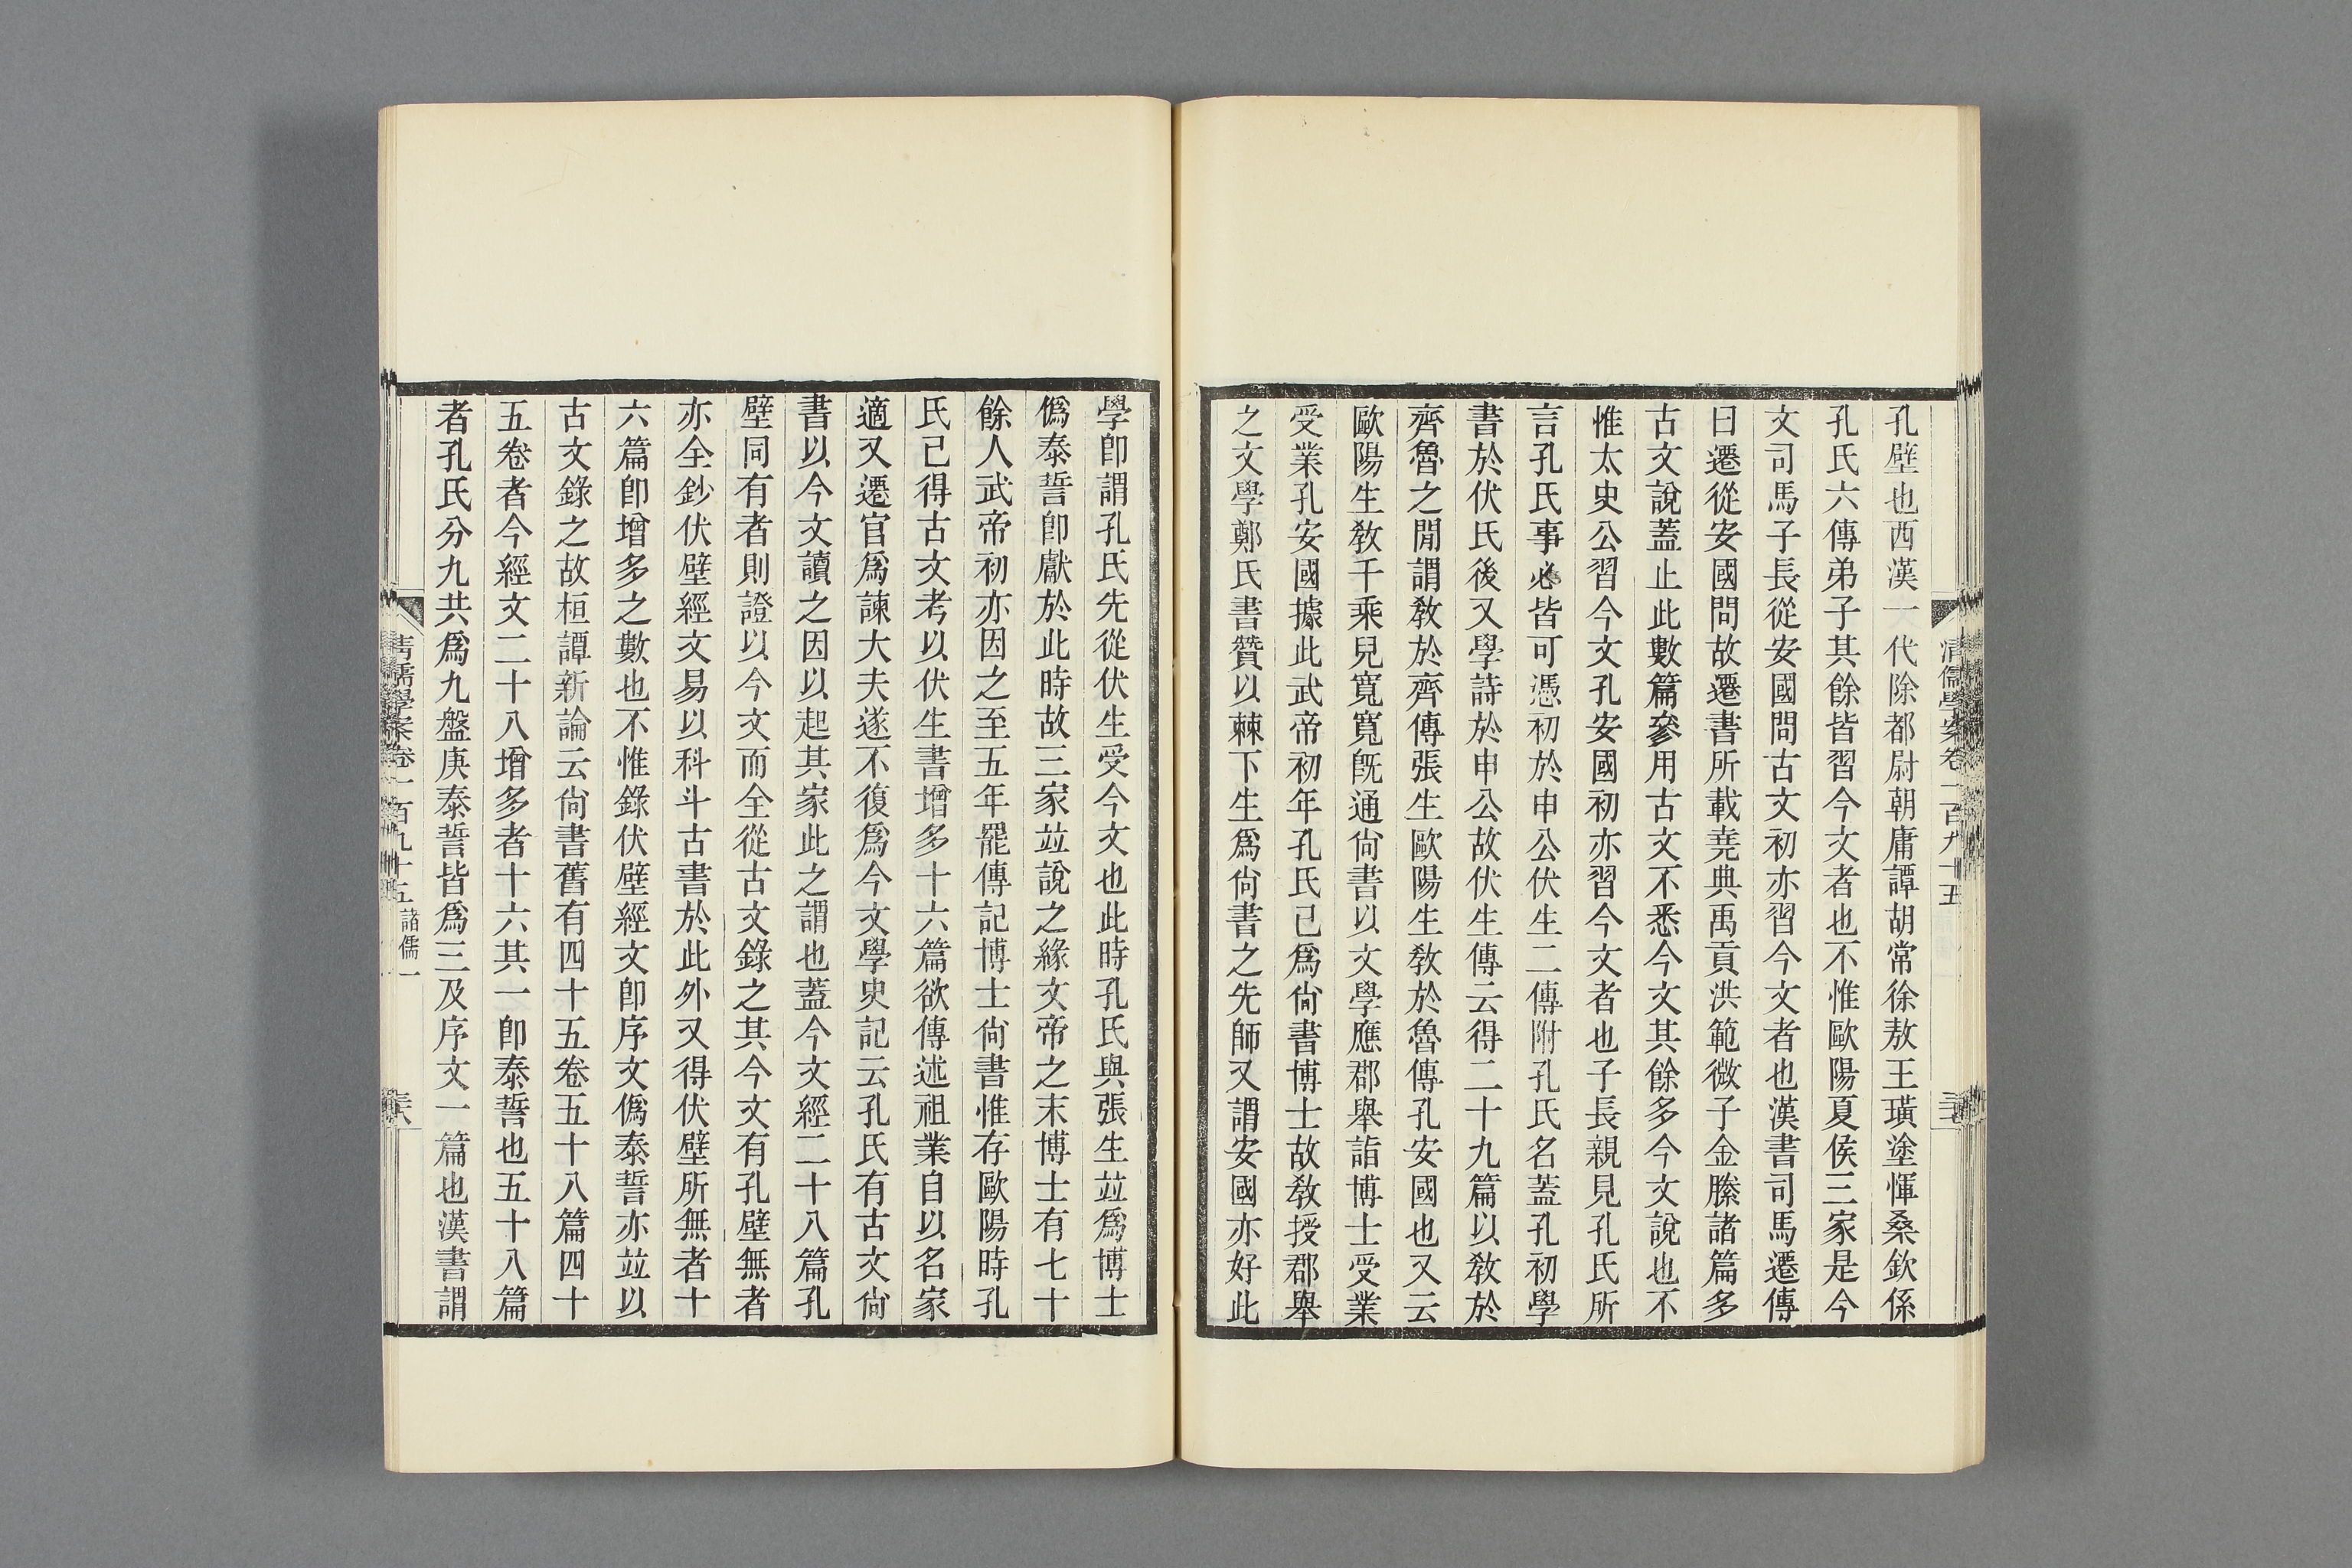 孔壁也西漢一代除都尉朝庸譚胡常徐敖王璜塗惲桑欽係
孔氏六傳弟子其餘皆習今文者也不惟歐陽夏侯三家是今
文司馬子長從安國問古文初亦習今文者也漢書司馬遷傳
曰遷從安國問故遷書所載堯典禹貢洪範微子金縢諸篇多
古文說蓋止此數篇參用古文不悉今文其餘多今文說也不
惟太史公習今文孔安國初亦習今文者也子長親見孔氏所
言孔氏事必皆可憑初於申公伏生二傳附孔氏名蓋孔初學
書於伏氏後又學詩於申公故伏生傳云得二十九篇以教於
齊魯之閒謂教於齊傳張生歐陽生教於魯傳孔安國也又云
歐陽生教千乘兒寬寬既通尙書以文學應郡舉詣博士受業
受業孔安國據此武帝初年孔氏已爲尙書博士故教授郡舉
之文學鄭氏書贊以棘下生爲尙書之先師又謂安國亦好此
學卽謂孔氏先從伏生受今文也此時孔氏與張生竝爲博士
僞泰誓卽獻於此時故三家竝說之緣文帝之末博士有七十
餘人武帝初亦因之至五年罷傳記博士尙書惟存歐陽時孔
氏已得古文考以伏生書增多十六篇欲傳述祖業自以名家
適又遷官爲諫大夫遂不復爲今文學史記云孔氏有古文尙
書以今文讀之因以起其家此之謂也蓋今文經二十八篇孔
壁同有者則證以今文而全從古文錄之其今文有孔壁無者
亦全鈔伏壁經文易以科斗古書於此外又得伏壁所無者十
六篇卽增多之數也不惟錄伏壁經文卽序文僞泰誓亦竝以
古文錄之故桓譚新論云尙書舊有四十五卷五十八篇四十
五卷者今經文二十八增多者十六其一卽泰誓也五十八篇
者孔氏分九共爲九盤庚泰誓皆爲三及序文一篇也漢書謂
清儒學案卷一百九十五 諸儒一